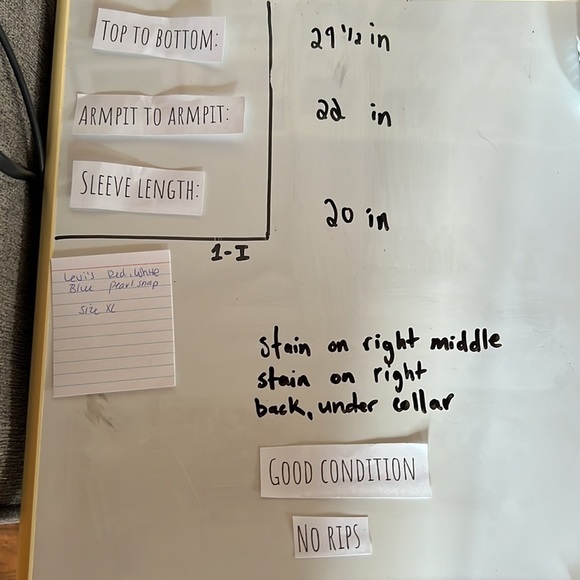 TOP TO BOTTOM: 29 1/2 in
ARMPIT TO ARMPIT: 22 in
SLEEVE LENGTH: 20 in
1-I
Levi's Red, White
Blue Pearl snap
Size XL
Stain on right middle
stain on right
back, under collar
GOOD CONDITION
NO RIPS